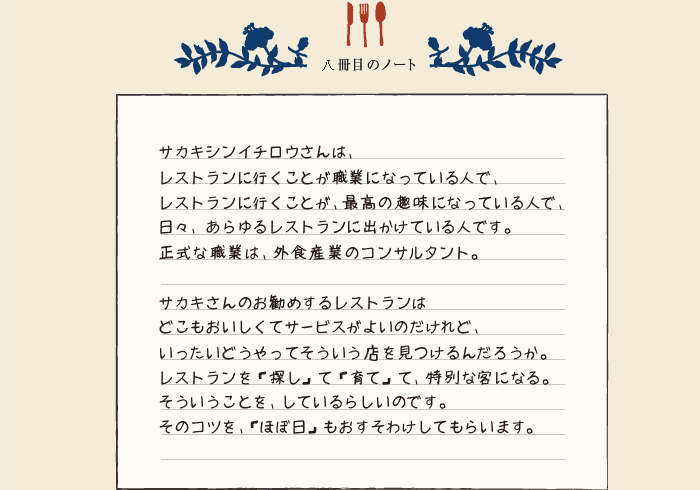 八冊目のノート
サカキシンイチロウさんは、
レストランに行くことが職業になっている人で、
レストランに行くことが、最高の趣味になっている人で、
日々、あらゆるレストランに出かけている人です。
正式な職業は、外食産業のコンサルタント。
サカキさんのお勧めするレストランは
どこもおいしくてサービスがよいのだけれど、
いったいどうやってそういう店を見つけるんだろうか。
レストランを『探し』て『育て』て、特別な客になる。
そういうことを、しているらしいのです。
そのコツを、『ほぼ日』もおすそわけしてもらいます。